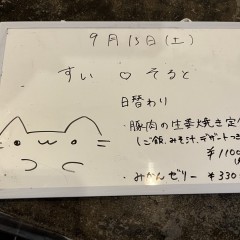 9月13日(土)
すい♡そると
日替わり
・豚肉の生姜焼き定
(ご飯、みそ汁、デザートつ
¥1100
・みかんゼリー ¥330